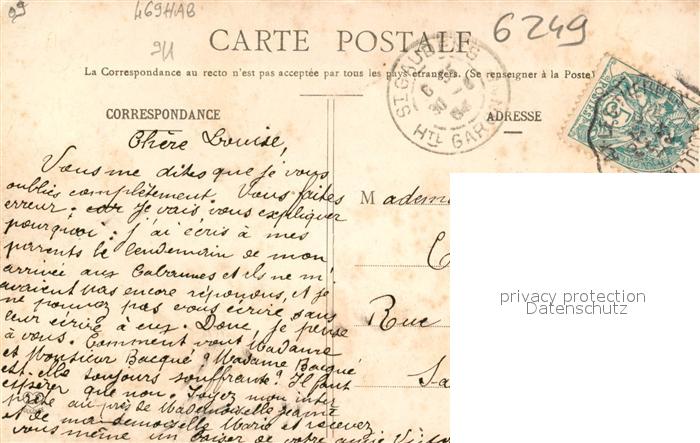 99
469HAB
6249
CARTE POSTALE
La Correspondance au recto n'est pas acceptée par tous les pays étrangers. (Se renseigner à la Poste)
CORRESPONDANCE
ADRESSE
ST GAUDENS
Hte GARONNE
Chère Louise,
Vous me dites que je vous
oublies complètement. Vous faites
erreur. car Je vais vous expliquer
pourquoi : j'ai écris à mes
parents le lendemain de mon
arrivée aux Cabannes et ils ne m'
avaient pas encore répondus, et je
ne pouvez pas vous écrire sans
leur écrire à eux. Donc, je pense
à vous. Comment vont Madame
et Monsieur Bacqué ? Madame Bacqué
est-elle toujours souffrante ? Il faut
espérer que non. Soyez mon inter
prète auprès de Mademoiselle Jeanne
et de mademoiselle Marie et recevez
vous même un baiser de votre amie
Madem
Rue
privacy protection
Datenschutz